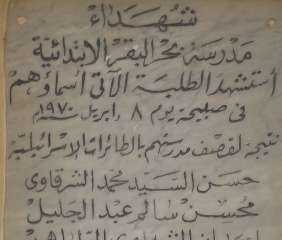 شهداء
مدرسة بحر البقر الابتدائية
أستشهد الطلبة الآتى أسماؤهم
فى صبيحة يوم ٨ ابريل ١٩٧٠
نتيجة لقصف مدرستهم بالطائرات الإسرائيلية
حسن السيد محمد الشرقاوى
محسن سالم عبد الجليل